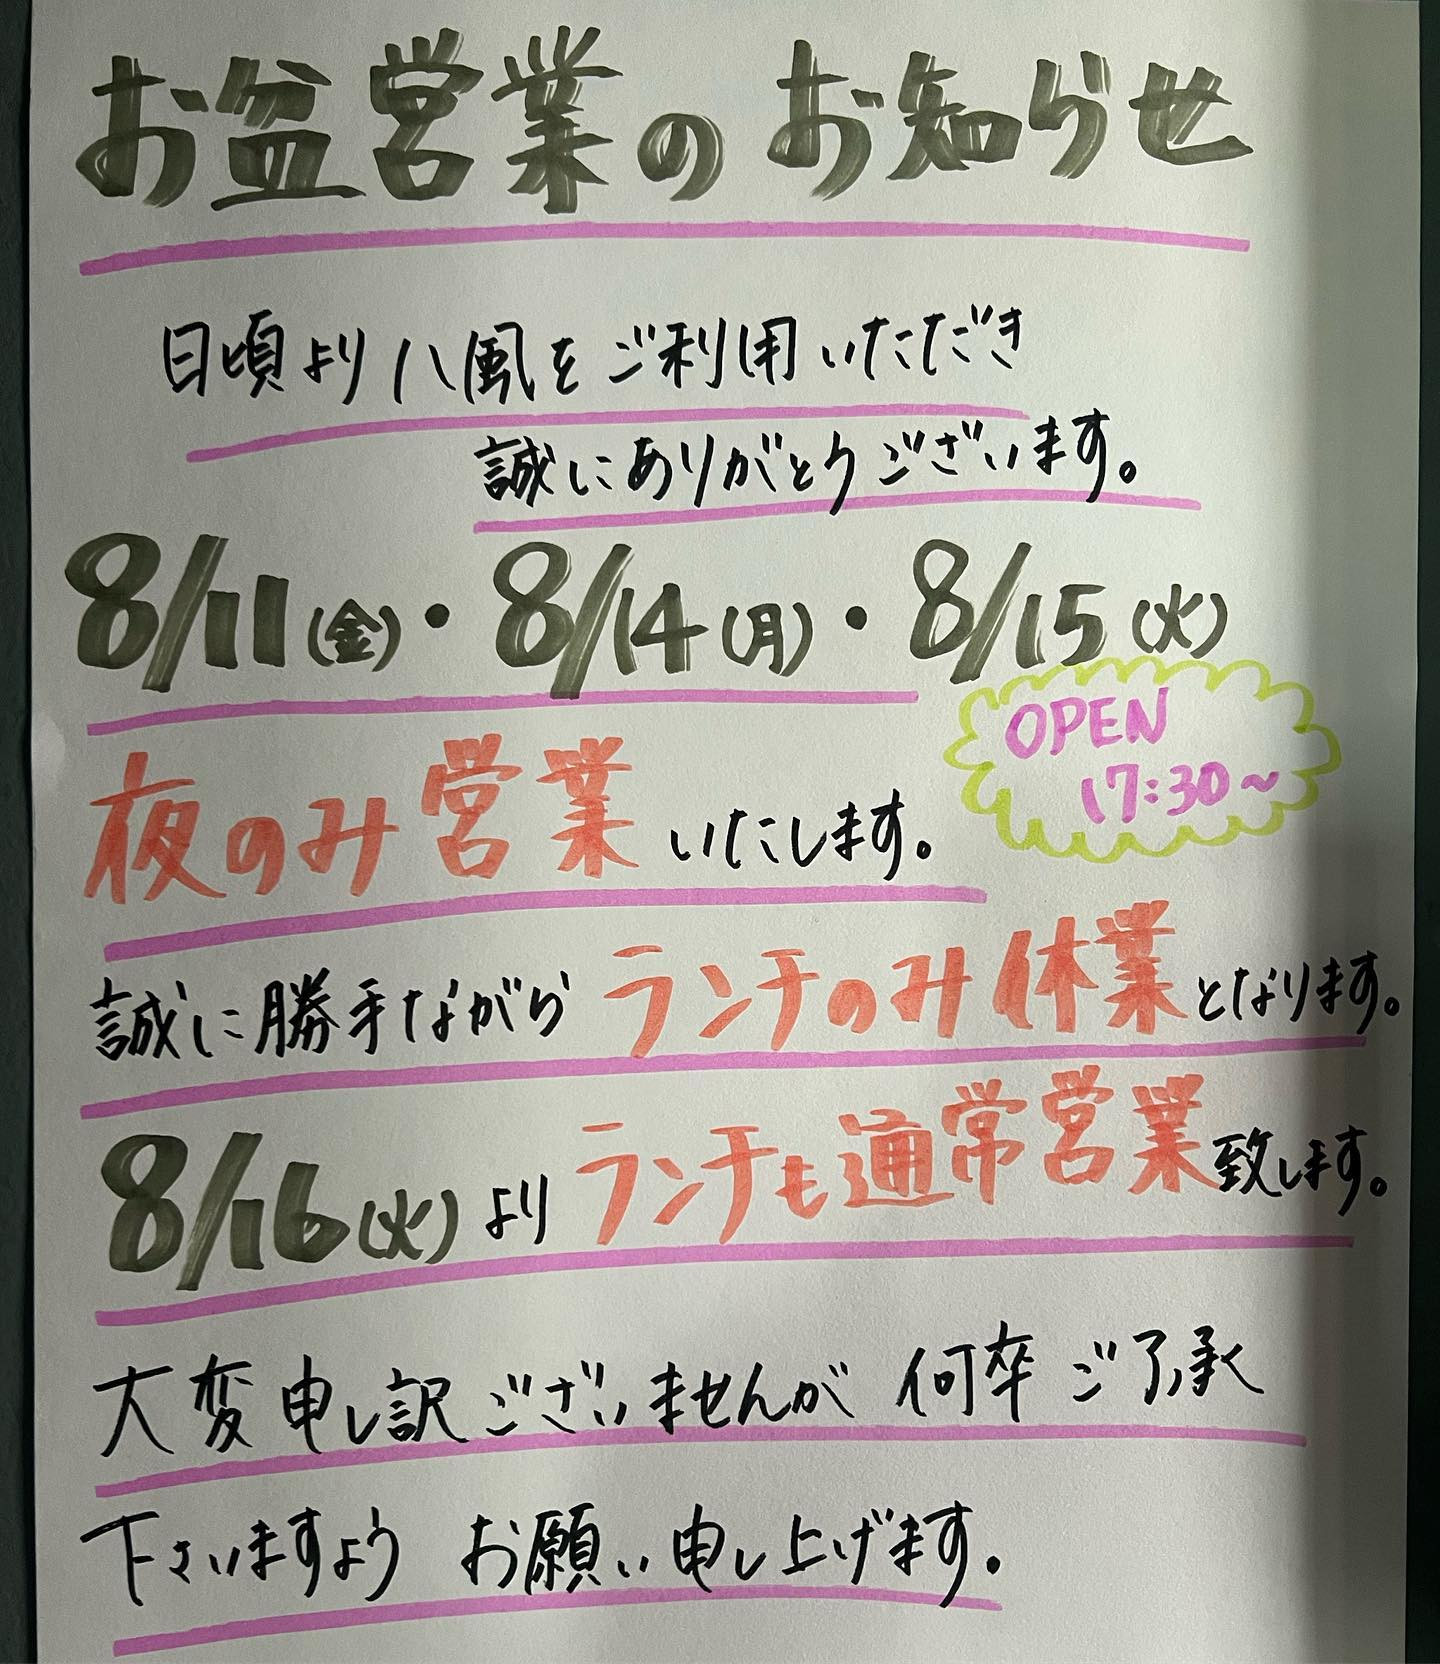 お盆営業のお知らせ
日頃より八風をご利用いただき
誠にありがとうございます。
8/11(金)・8/14(月)・8/15(火)
OPEN
17:30~
夜のみ営業いたします。
誠に勝手ながらランチのみ休業となります。
8/16(火)よりランチも通常営業致します。
大変申し訳ございませんが何卒ご了承
下さいますようお願い申し上げます。